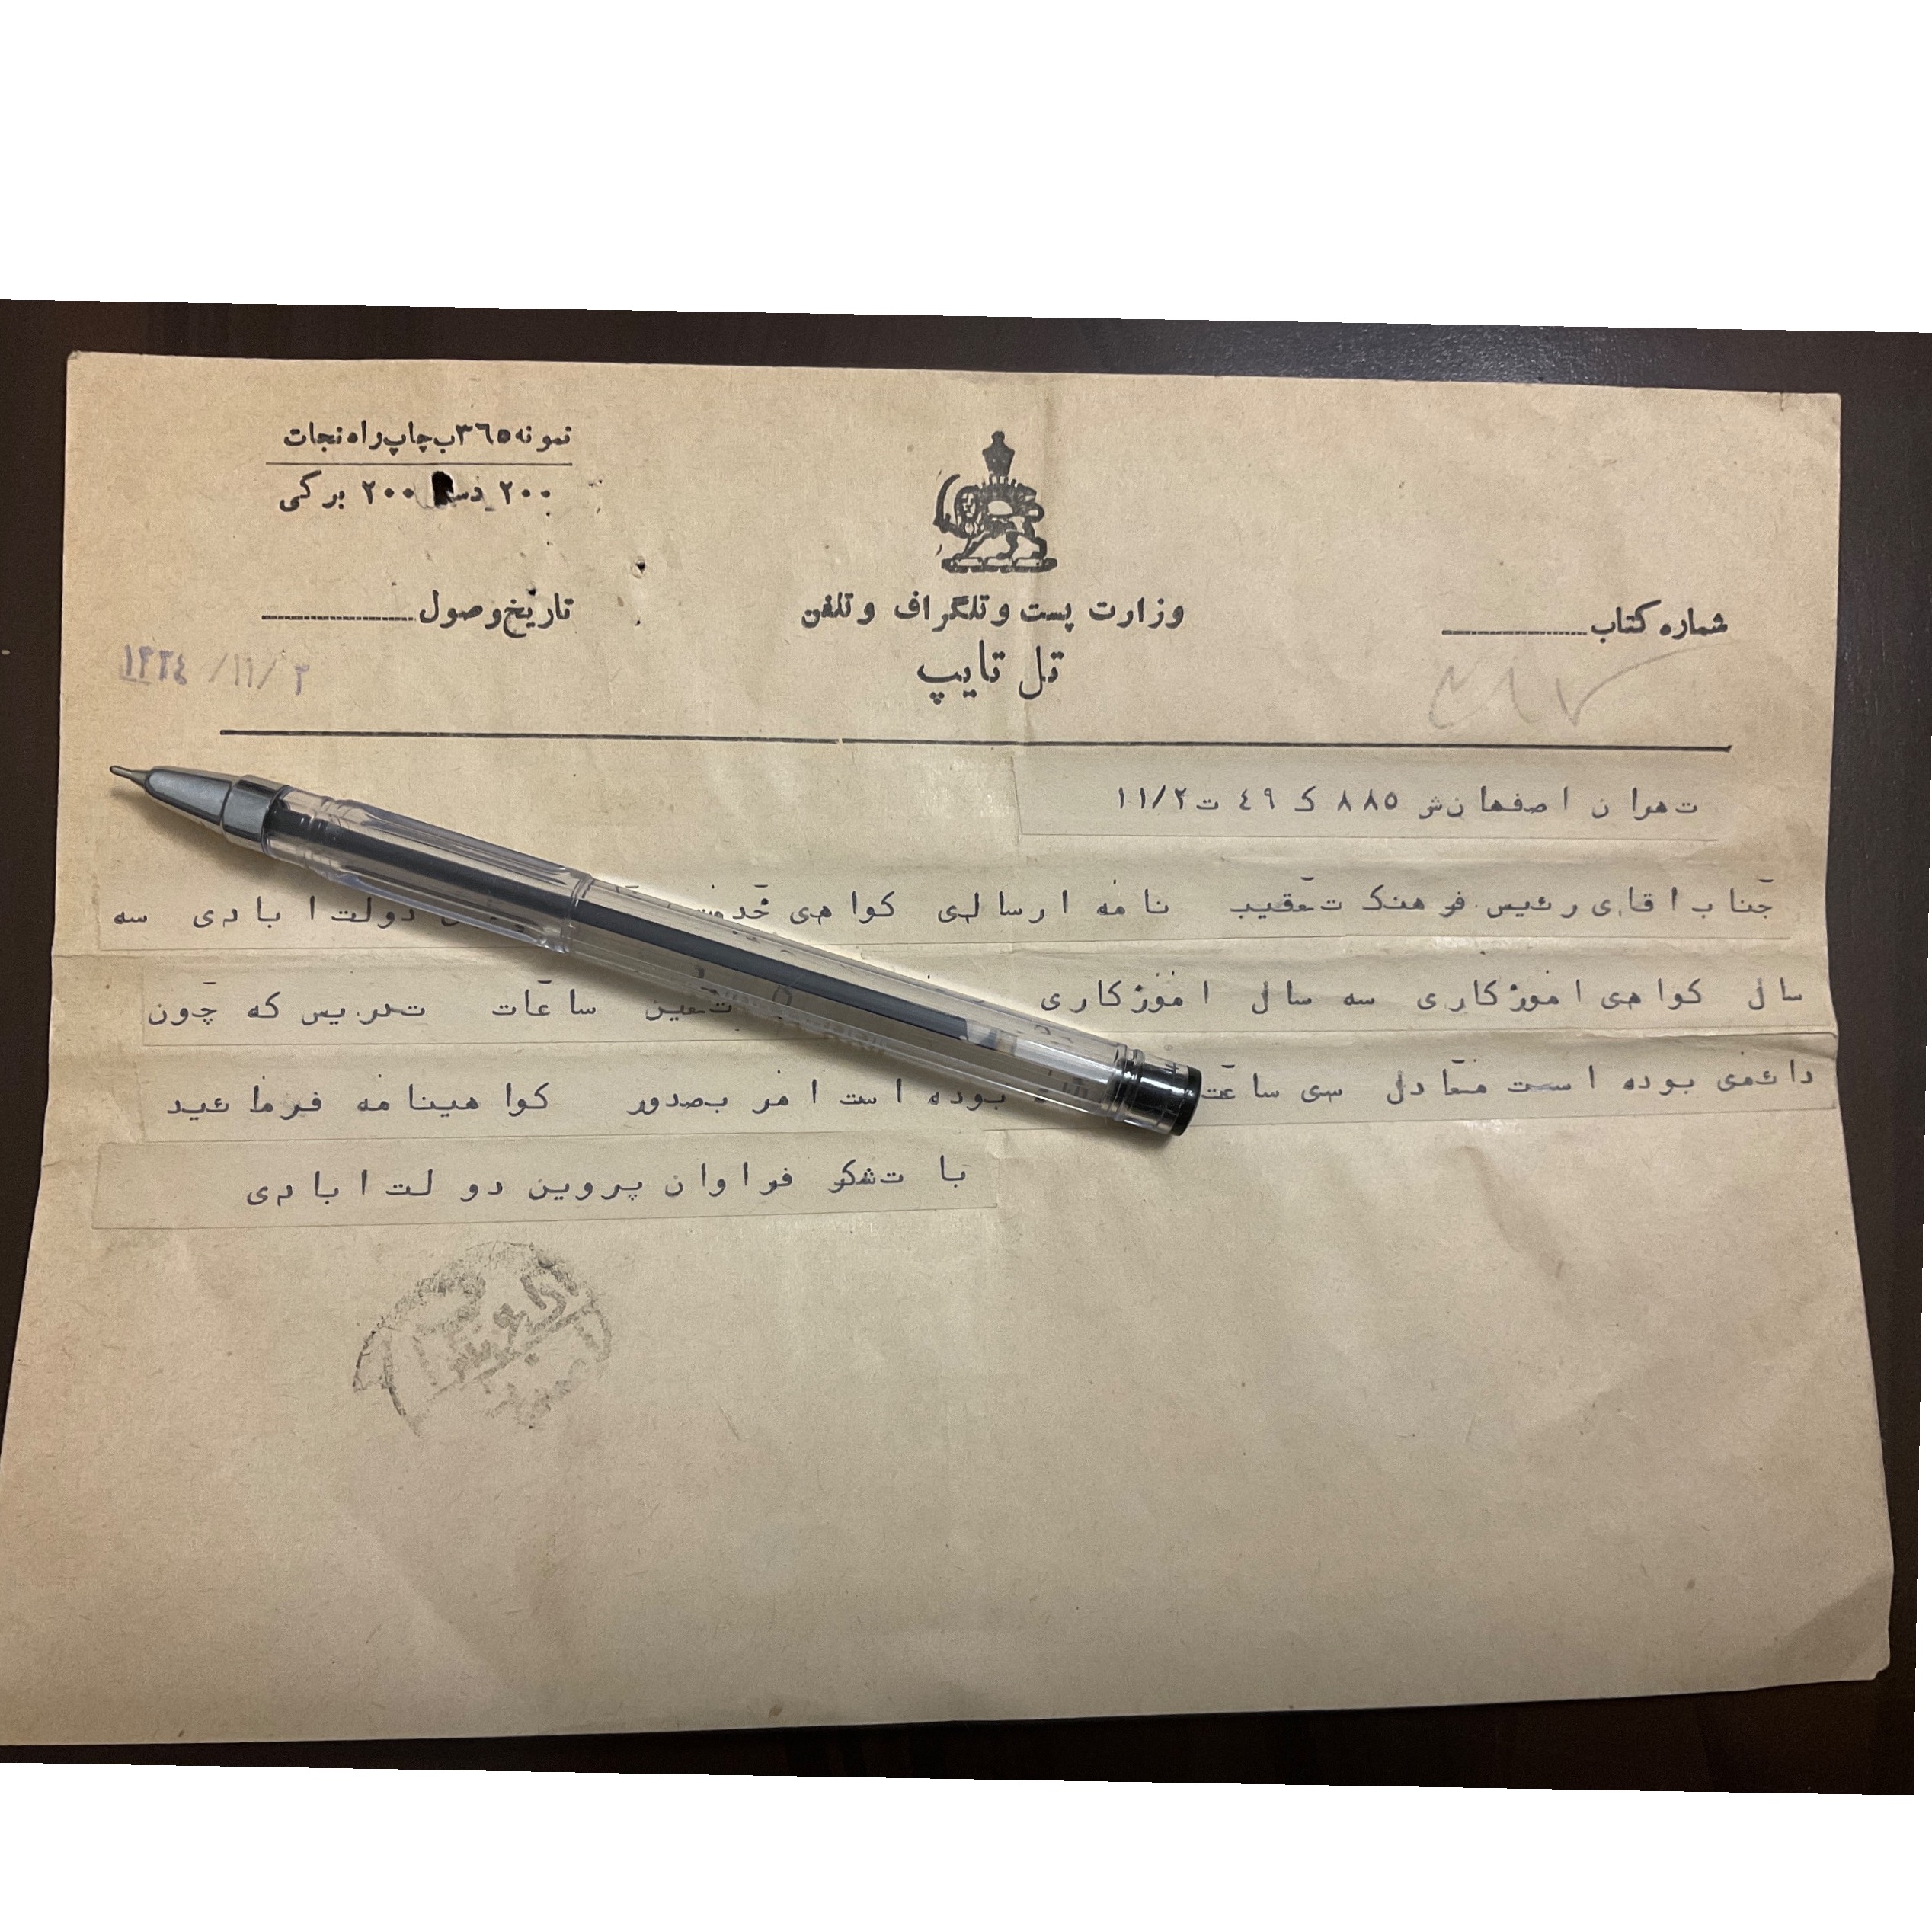 نمونه ۳۶۵ب چاپ راه نجات
۲۰۰ ۲۰۰ برگی
شماره کتاب
وزارت پست و تلگراف و تلفن
تاریخ وصول
تل تایپ
تهران اصفهان ش ۸۸۵ ک ۴۹ ت ۱۱/۲
جناب اقای رئیس فرهنک تعقیب نامه ارسالی کواهی خدمت دولت ابادی سه
سال کواهی اموزکاری سه سال اموزکاری تعین ساعات تدریس که چون
دائمی بوده است معادل سی ساعت بوده است امر بصدور کواهینامه فرمائید
با تشکر فراوان پروین دولت ابادی